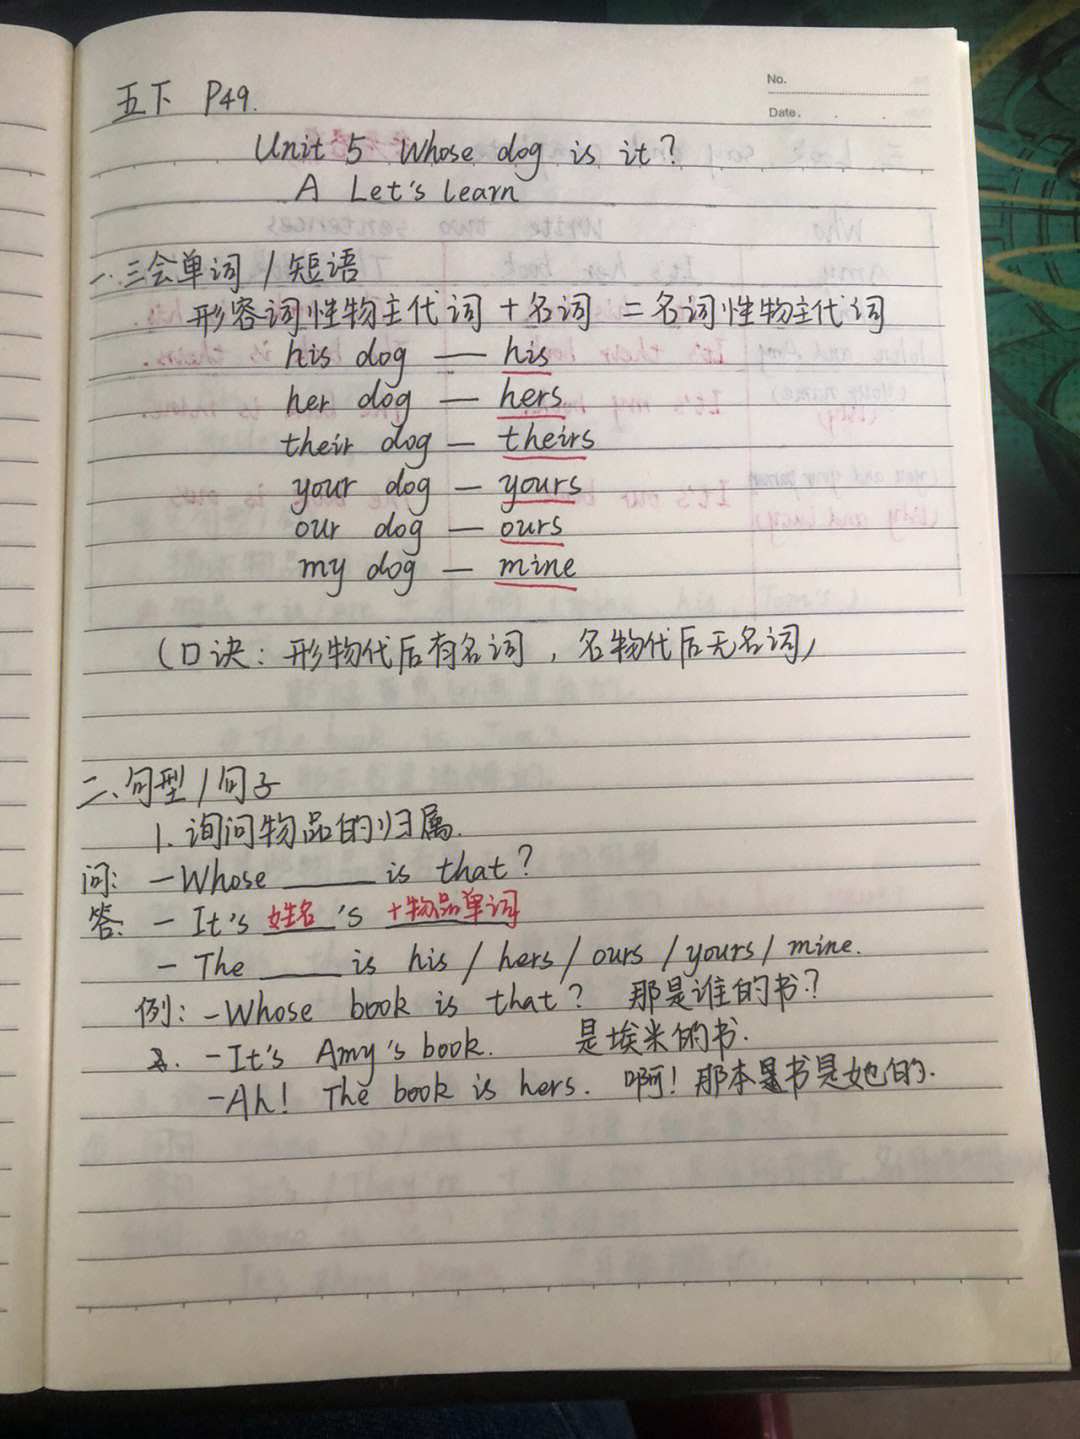 No.
Date.
五下 P49.
Unit 5 Whose dog is it?
A Let's learn
一.三会单词/短语
形容词性物主代词+名词=名词性物主代词
his dog — his
her dog — hers
their dog — theirs
your dog — yours
our dog — ours
my dog — mine
(口诀:形物代后有名词,名物代后无名词)
二、句型/句子
1.询问物品的归属.
问: -Whose ____ is that?
答: - It's 姓名 's +物品单词
- The ____ is his/hers/ours/yours/mine.
例: -Whose book is that? 那是谁的书?
-It's Amy's book. 是埃米的书.
-Ah! The book is hers. 啊!那本书是她的.